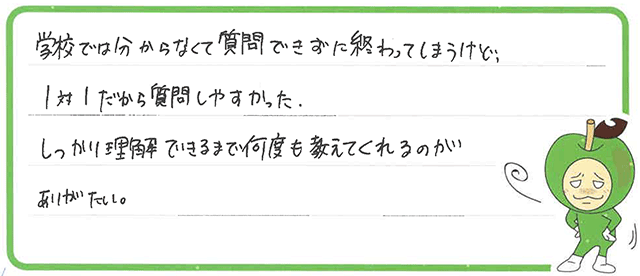 学校では分からなくて質問できずに終わってしまうけど、
1対1だから質問しやすかった.
しっかり理解できるまで何度も教えてくれるのが
ありがたい。